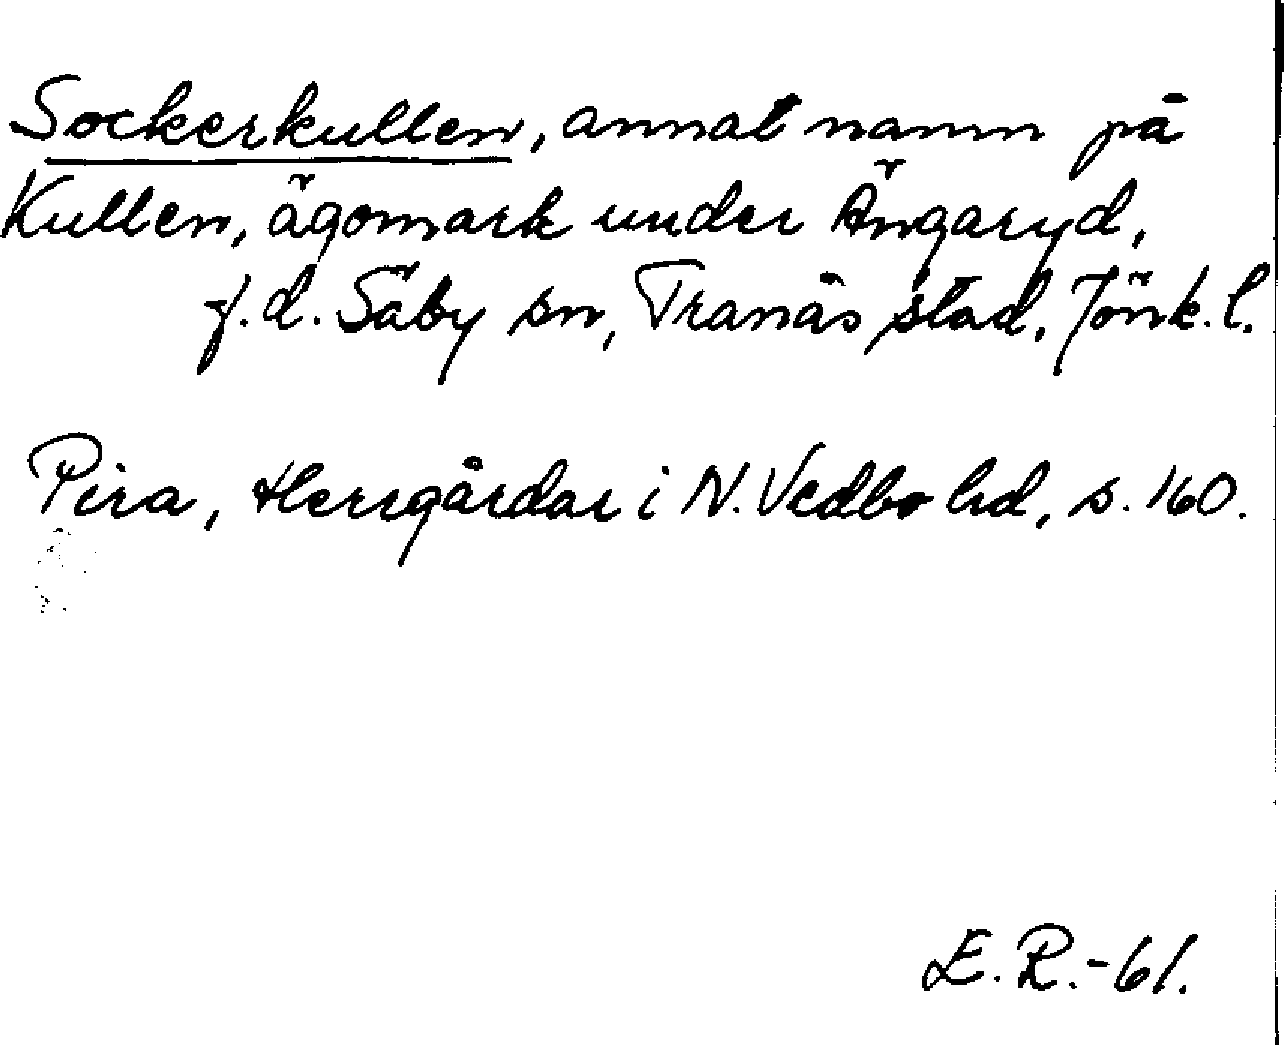 Sockerkullen, annat namn på
Kullen, ägomark under Ängaryd,
f.d. Säby sn, Tranås stad, Jönk. l.
Pira, Herrgårdar i N. Vedbo hd, s. 160.
E. R.-61.